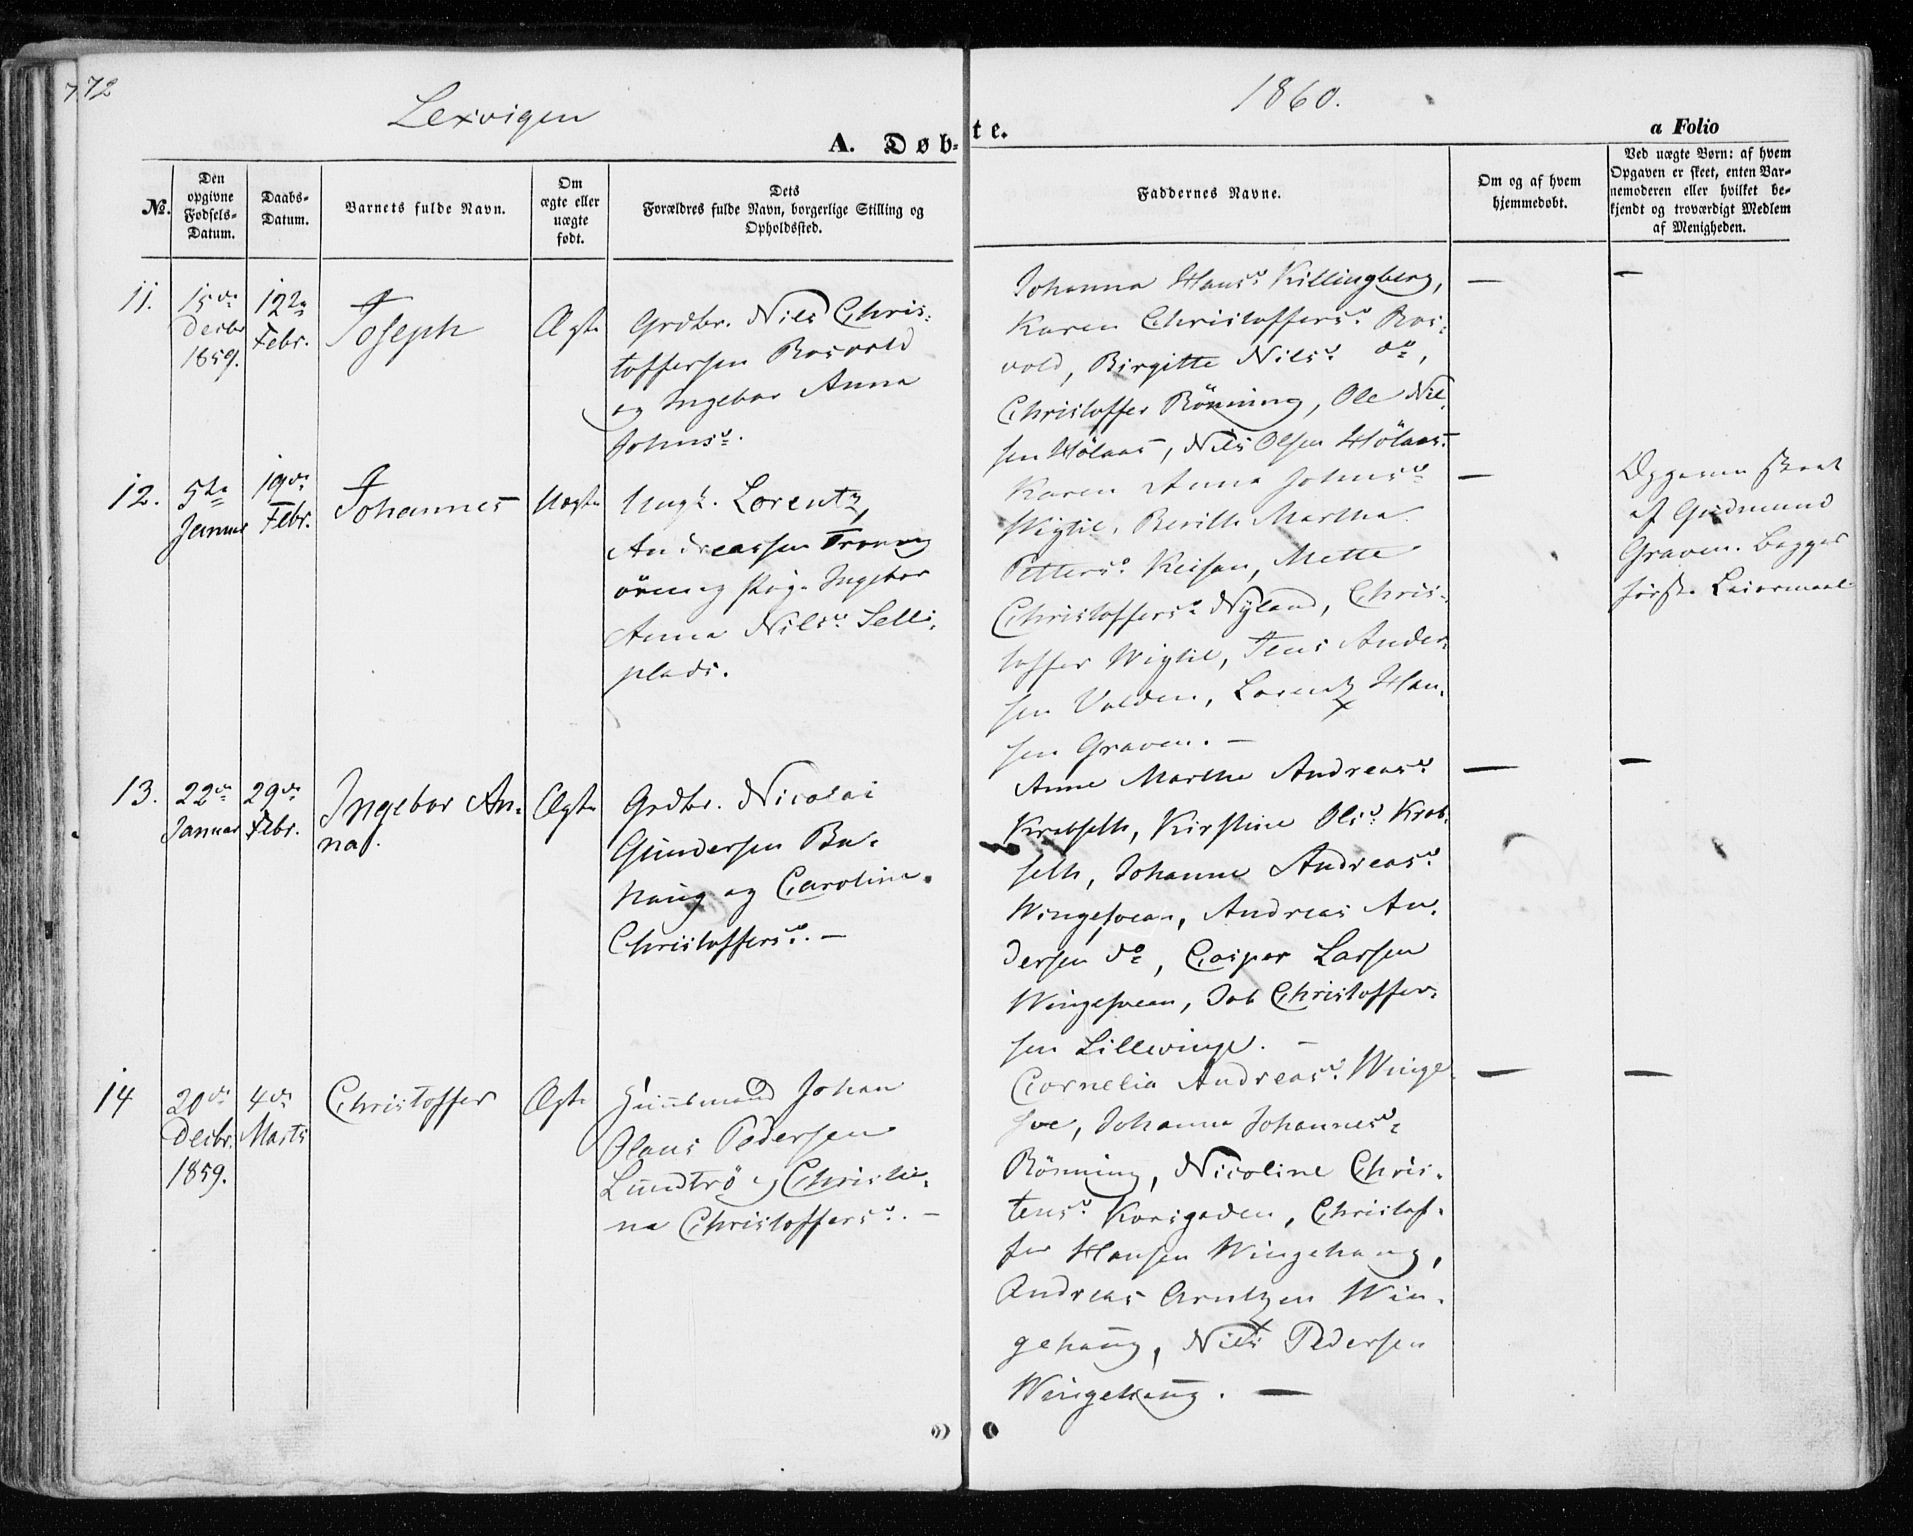 772
Lexvigen
1860.
A. Døb-
te.
a Folio
No.
Den
opgivne
Fødsels-
Datum.
Daabs-
Datum.
Barnets fulde Navn.
Om
ægte eller
uægte
født.
Dets
Forældres fulde Navn, borgerlige Stilling og
Opholdssted.
Faddernes Navne.
Om og af hvem
hjemmedøbt.
Ved uægte Børn: af hvem
Opgaven er skeet, enten Bar-
nemoderen eller hvilket be-
kjendt og troværdigt Medlem
af Menigheden.
11.
15de
Decbr
1859.
12te
Febr.
Joseph
Ægte
Grdbr. Nils Chris-
toffersen Rosvold
og Ingebor Anna
Johnsd.
Johanna Hansd. Killingberg,
Karen Christoffersd. Ros-
vold, Birgitte Nilsd. do,
Christoffer Rönning, Ole Nil-
sen Hölaas, Nils Olsen Hölaas.
—
—
12.
5te
Januar
19de
Febr.
Johannes
Uægte
Ungk. Lorentz
Andreassen
og Pige Ingebor
Anna Nilsd. Selli-
plads.
Karen Anna Johnsd.
Wigtil, Martha
Pettersd. Keisan, Mette
Christoffersd. Nyland, Chris-
toffer Wigtil, Jens Ander-
sen Valden, Lorentz Han-
sen Graven. —
—
Opgaven skeet
af Gudmund
Graven. Begges
første Leiermaal
13.
22de
Januar
29de
Febr.
Ingebor An-
na.
Ægte
Grdbr. Nicolai
Gundersen Bu-
haug og Caroline
Christoffersd. —
Anne Martha Andreasd.
Krabseth, Kirstine Olsd. Krab-
seth, Johanna Andreasd.
Wingesvean, Andreas An-
dersen do, Casper Larsen
Wingesvean, Job Christoffer-
sen Lillewinge. —
—
—
14
20de
Decbr.
1859.
4de
Marts
Christoffer
Ægte
Huusmand Johan
Olaus Pedersen
Lundtrö og Christia-
na Christoffersd. —
Cornelia Andreasd. Winge-
sve, Johanna Johannesd.
Rönning, Nicoline Chris-
tensd. Korsgaden, Christof-
fer Hansen Wingehaug,
Andreas Arntzen Win-
gehaug, Nils Pedersen
Wingehaug. —
—
—